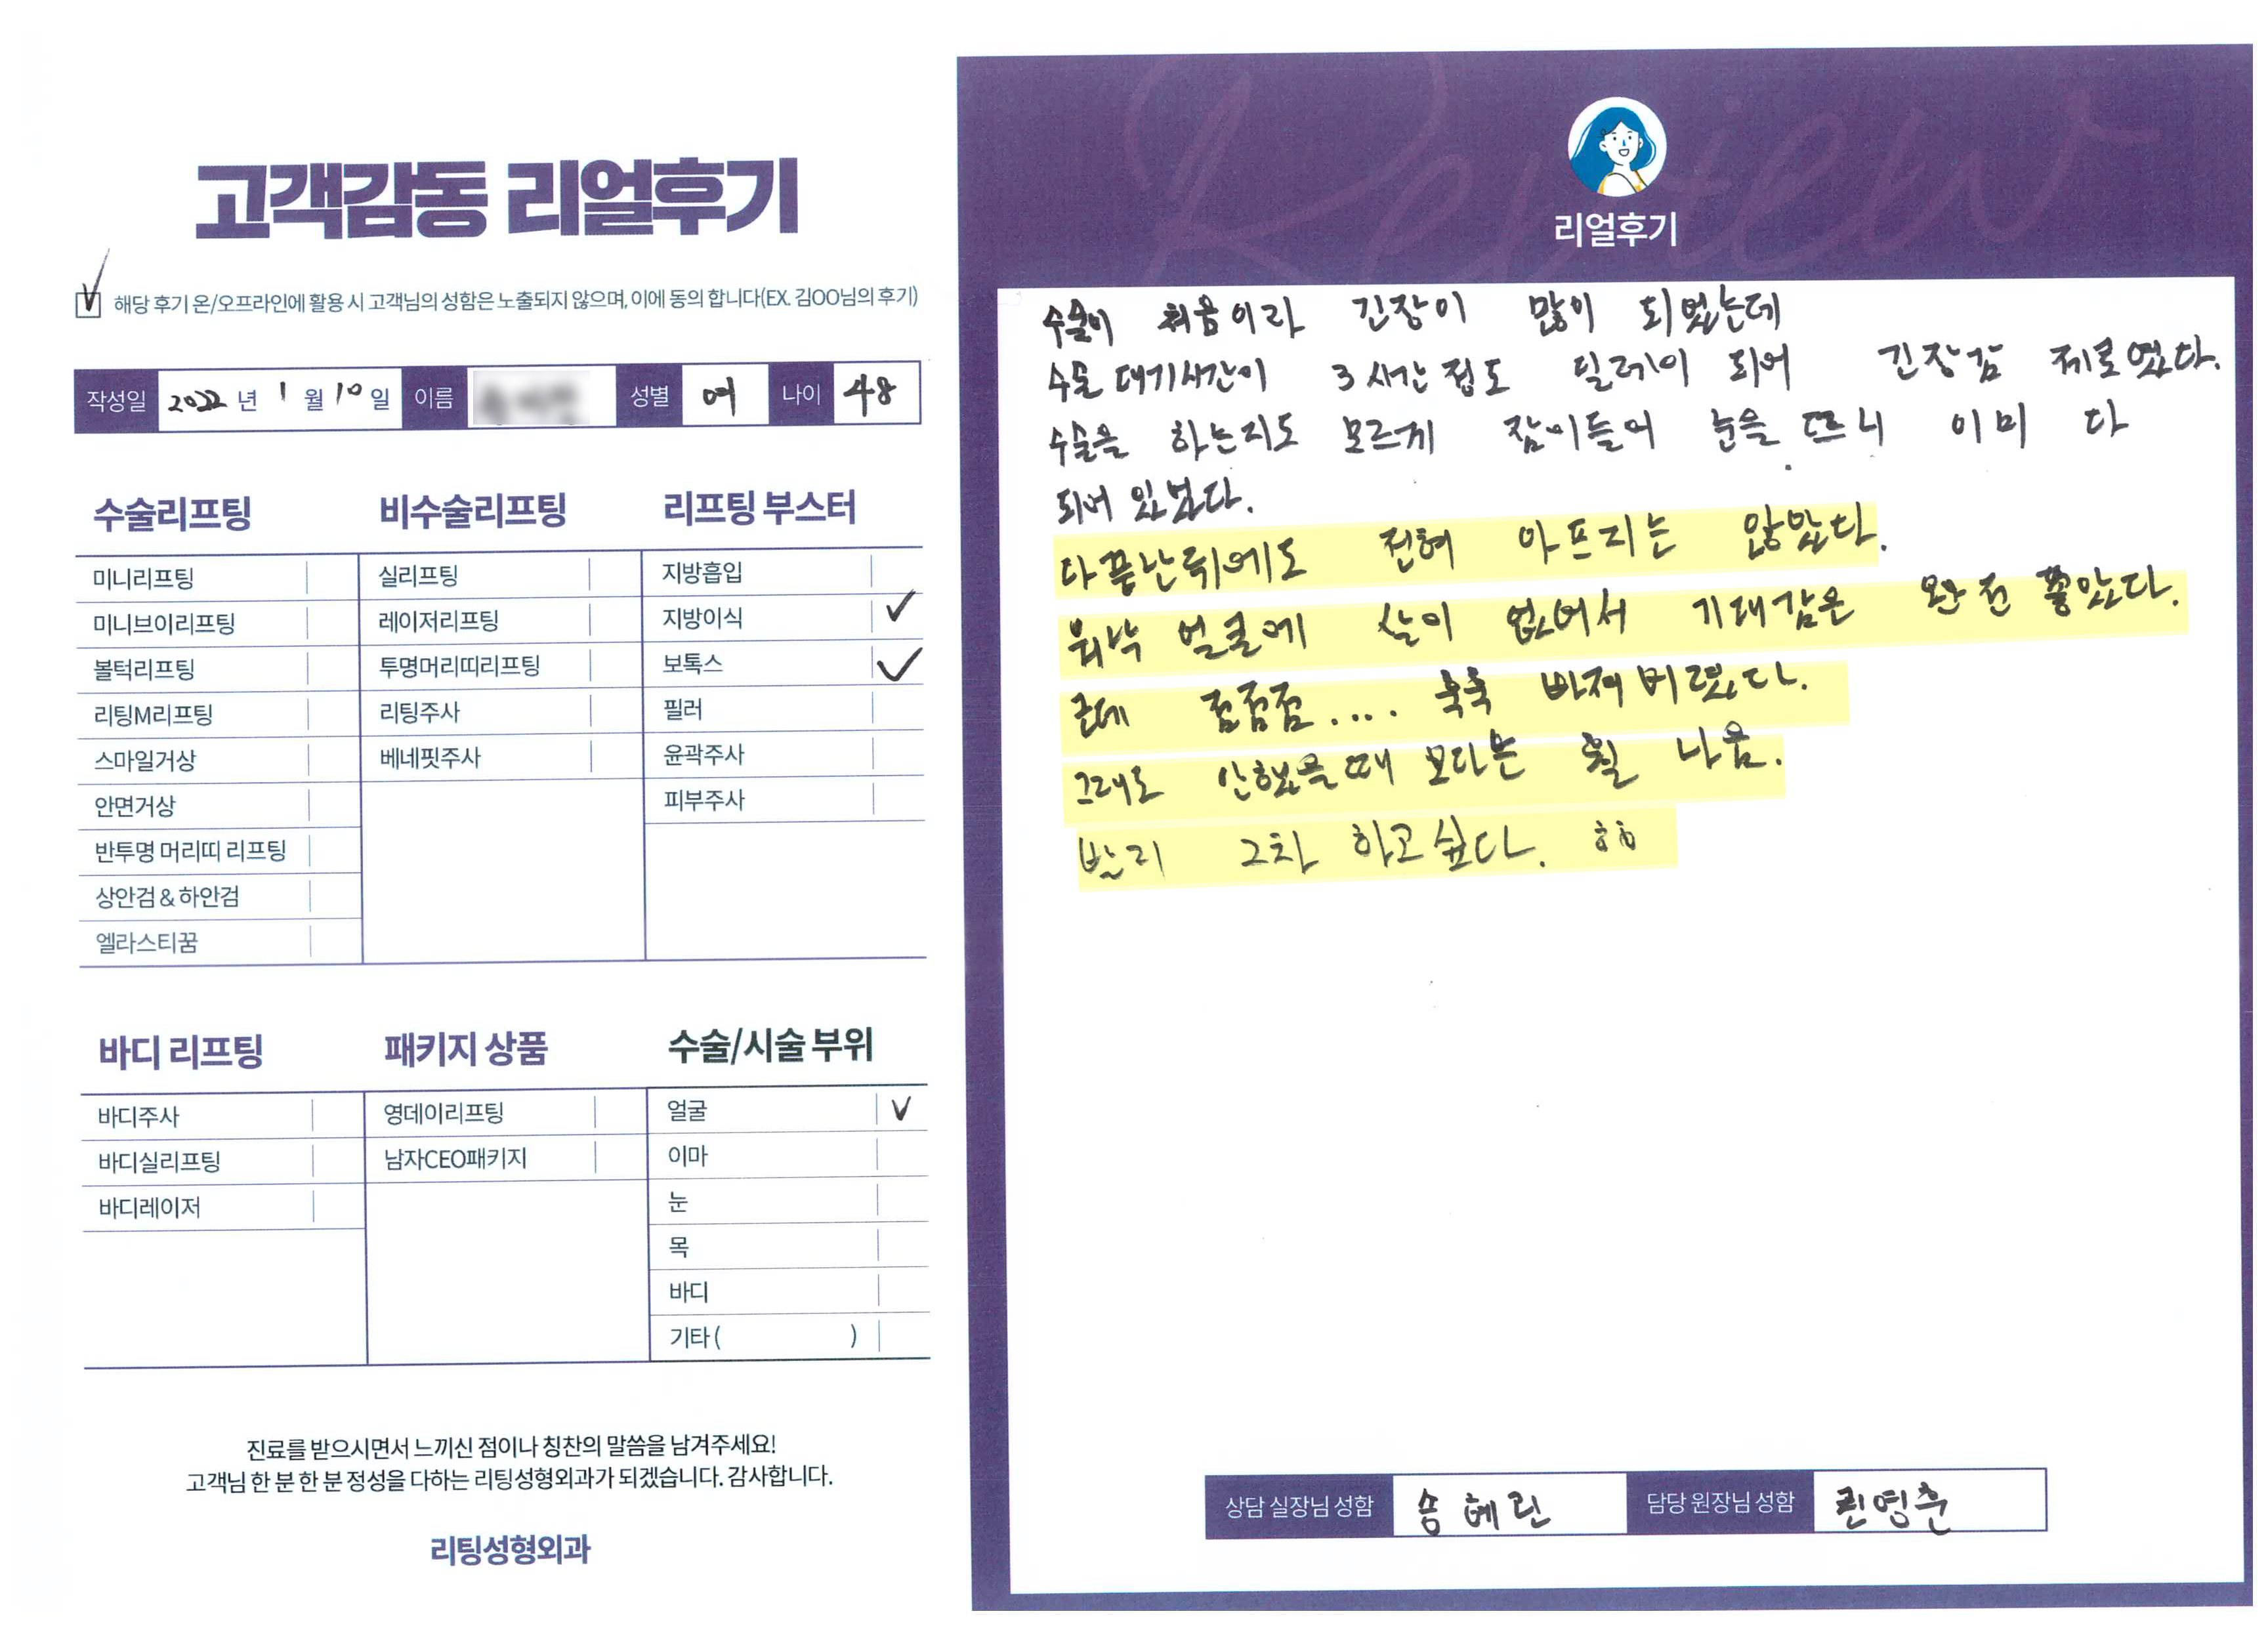 고객감동 리얼후기
해당 후기 온/오프라인에 활용 시 고객님의 성함은 노출되지 않으며, 이에 동의 합니다(EX. 김OO님의 후기)
작성일 2022 년 1 월 10 일 이름 성별 여 나이 48
수술리프팅
미니리프팅
미니브이리프팅
볼턱리프팅
리팅M리프팅
스마일거상
안면거상
반투명 머리띠 리프팅
상안검 & 하안검
엘라스티꿈
비수술리프팅
실리프팅
레이저리프팅
투명머리띠리프팅
리팅주사
베네핏주사
리프팅 부스터
지방흡입
지방이식
보톡스
필러
윤곽주사
피부주사
바디 리프팅
바디주사
바디실리프팅
바디레이저
패키지 상품
영데이리프팅
남자CEO패키지
수술/시술 부위
얼굴
이마
눈
목
바디
기타 ( )
진료를 받으시면서 느끼신 점이나 칭찬의 말씀을 남겨주세요!
고객님 한 분 한 분 정성을 다하는 리팅성형외과가 되겠습니다. 감사합니다.
리팅성형외과
Review
리얼후기
수술이 처음이라 긴장이 많이 되었는데
수술 대기시간이 3시간 정도 딜레이 되어 긴장감 제로였다.
수술을 하는지도 모르게 잠이들어 눈을 뜨니 이미 다
되어 있었다.
다 끝난뒤에도 전혀 아프지는 않았다.
워낙 얼굴에 살이 없어서 기대감은 완전 좋았다.
근데 점점점.... 쭉쭉 빠져버렸다.
그래도 안했을때 보다는 훨 나음.
빨리 2차 하고싶다. ㅎㅎ
상담 실장님 성함 송혜린 담당 원장님 성함